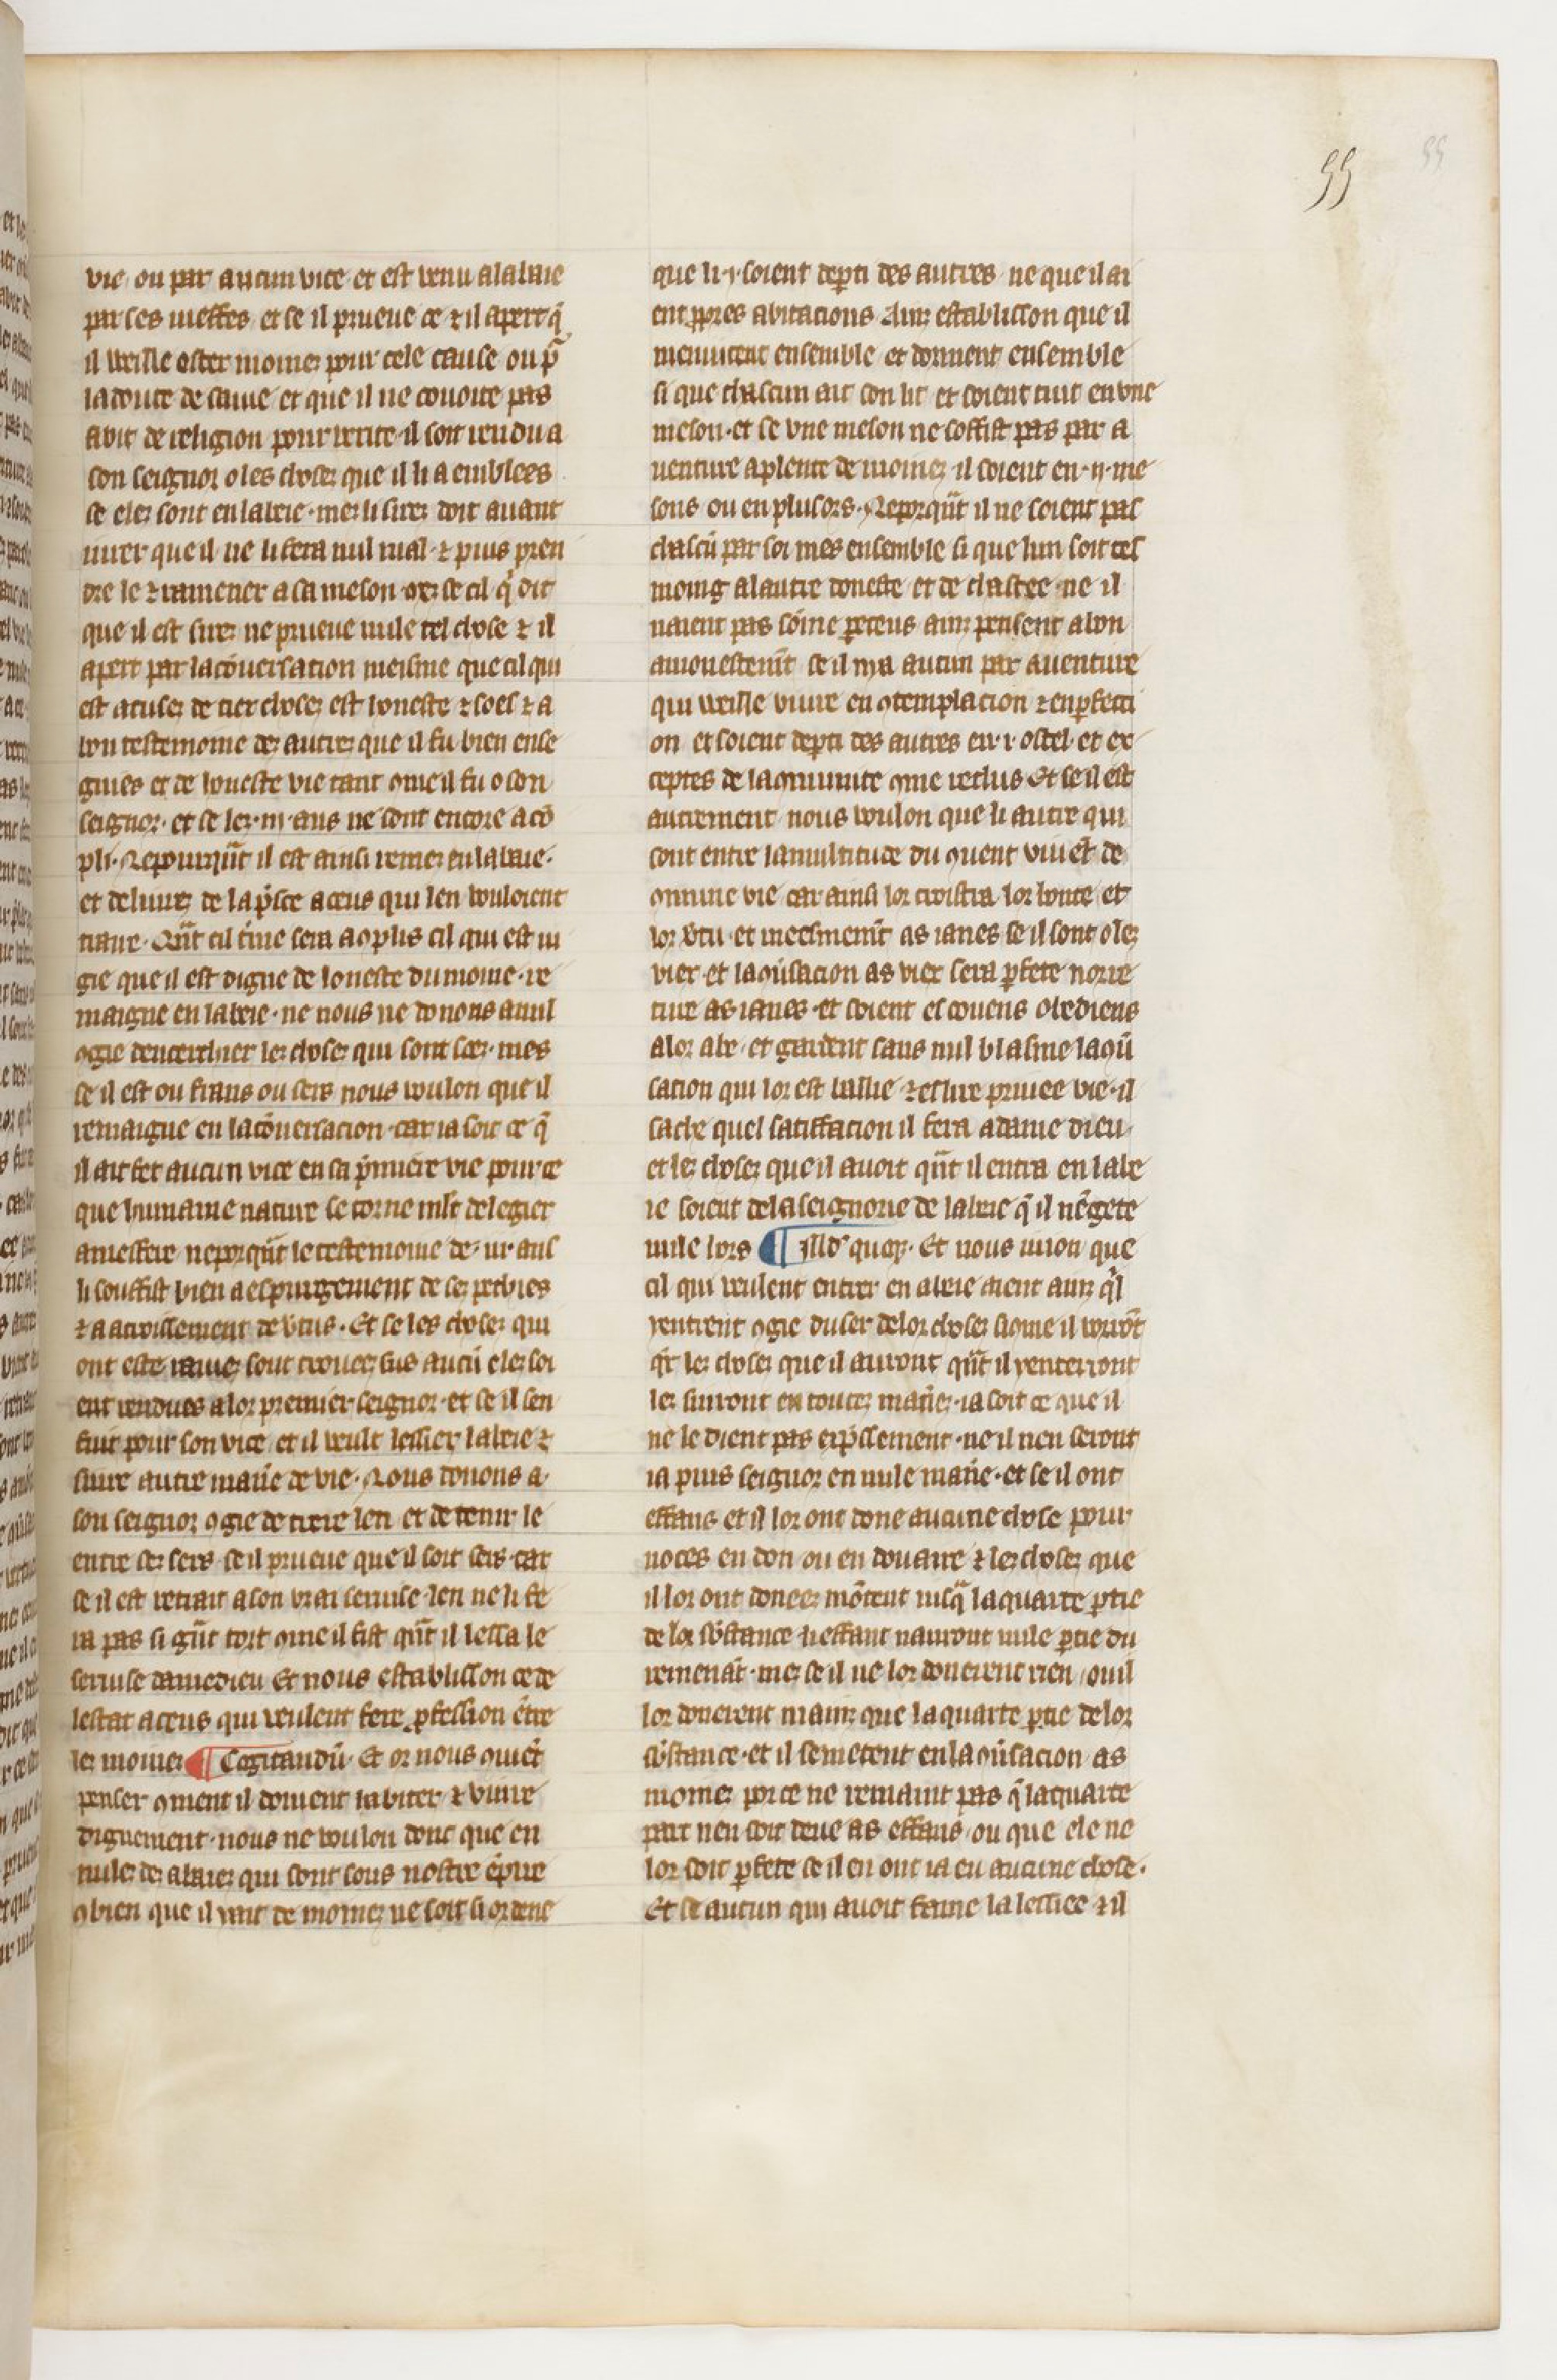 55
55
vie ou par aucun vice et est venu a labaie
par ses meffes et se il prueue ce ⁊ il apert q̃
il veille ester moines pour cele cause ou p̃
la doute de sauie et que il ne couoite pas
abit de religion pour verite il soit rendu a
son seignor o les choses que il li a emblees
se eles sont en labeie · mes li sires doit auant
iurer que il ne li fera nul mal · ⁊ puis pren
dre le ⁊ ramener a sa meson · ⁊ se cil q̃ dit
que il est sires ne prueue nule tel chose ⁊ il
apert par la cõuersation meisme que cil qui
est acusez de tiex choses est honeste ⁊ soef ⁊ a
bon testemoine des autres que il fu bien ense
gniés et de honeste vie tant ꝯme il fu o son
seignor · et se les · iii · ans ne sont encore acõ
pli · Nepourqũt il est ainsi remes en labaie ·
et deliures de la p̃sce a ceus qui len vouloient
traire · Qũt cil t̃me sera aꝯplis cil qui est iu
gie que il est digne de loneste du moine · re
maigne en labeie · ne nous ne donons a nul
ꝯgie dencerchier les choses qui sont sces · mes
se il est ou frans ou sers nous voulon que il
remaigne en la cõuersacion · car ia soit ce q̃
il ait fet aucun vice en sa p̃miere vie pour ce
que humaine nature se torne ml̃t de legier
a meffere neporqũt le testemoine de · iii · ans
li souffist bien a espurgement de ses pechies
⁊ a acroissement de v̾tus · Et se les choses qui
ont este
sont trouees sus aucũ eles soi
ent rendues a lor premier seignor · et se il sen
fuit pour son vice et il veult lessier labeie ⁊
siure autre mañe de vie · Nous donons a
son seignor ꝯgie de trere len et de tenir le
entre ses sers se il prueue que il soit sers · car
se il est retrait a son vrai seruise len ne li fe
ra pas si gñt tort ꝯme il fist qũt il lessa le
seruise damedieu Et nous establisson ce de
lestat a ceus qui veulent fere ꝓfession ẽtre
les moines ¶ Cogitandũ · Et or nous ꝯuiẽt
penser ꝯment il doiuent habiter ⁊ viure
dignement · nous ne voulon donc que en
nules des abaies qui sont sous nostre ẽpire
ꝯbien que il yait de moines ne soit si ordene
que li · i · soient dep̱ti des autres ne que il ai
ent ꝓpres abitacions Ainz establisson que il
meniucent ensemble et dorment ensemble
si que chascun ait son lit et soient tuit en vne
meson · et se vne meson ne soffist pas par a
uenture a plente de moines il soient en · ii · me
sons ou en plusors · Neporqũt il ne soient pas
chascũ par soi mes ensemble si que lun soit tes
moing a lautre doneste et de chastee ne il
naient pas sõme
ainz pensent a bon
amonestem̃t se il nya aucun par auenture
qui veille viure en ꝯtemplacion ⁊ en p̱fecti
on et soient dep̱ti des autres en · i · ostel · et ex
ceptes de la ꝯmunite ꝯme reclus Et se il est
autrement nous voulon que li autre qui
sont entre la multitude du ꝯuent viuẽt de
ꝯmune vie car ainsi lor croistra lor bonte et
lor v̾tu · et meesmem̃t as ianes se il sont o les
viex · et la ꝯũsacion as viex sera p̱fete norre
ture as ianes · et soient es couens obediens
a lor abe · et gardent sans nul blasme la ꝯũ
sacion qui lor est baillie ⁊ eslire priuee vie · il
sache quel satiffacion il fera a dame dieu
et les choses que il auoit qũt il entra en labe
ie soient de la seignorie de labeie q̃ il nẽ gete
nule hors ¶ Illd̾ quoq̃ · Et nous iuion que
cil qui veulent entrer en abeie aient ainz q̃l
yentrent ꝯgie duser de lor choses si ꝯme il vorrõt
q̃r les choses que il auront qũt il yenterront
les siuront en toutes mañes · ia soit ce que il
ne le dient pas exp̃ssement · ne il nen seront
ia puis seignor en nule mañe · et se il ont
effans et il lor ont done aucune chose pour
noces en don ou en douaire ⁊ les choses que
il lor ont donees mõtent iusq̃ la quarte p̱tie
de lor sb̾stance li effant nauront nule p̱tie du
remenãt · mes se il ne lor donerent rien / ou il
lor donerent mainz que la quarte p̱tie de lor
sb̾stance · et il se metent en la ꝯũsacion as
moines por ce ne remaint pas q̃ la quarte
part nen soit deue as effans / ou que ele ne
lor soit p̱fete se il en ont ia eu aucune chose ·
Et se aucun qui auoit fame la lessiee ⁊ il